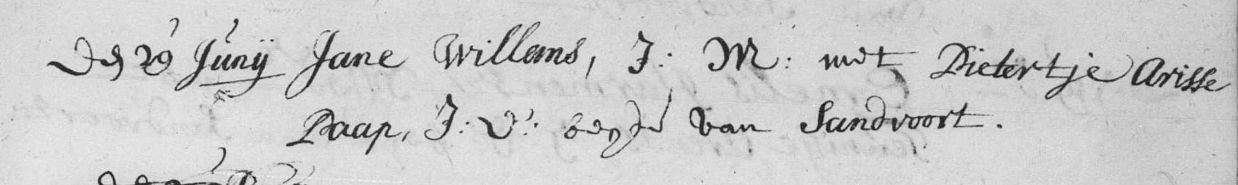 den 29 Junij Jane Willems, J: M: met Pietertje Arisse
Paap, J: D: beyde van Sandvoort.